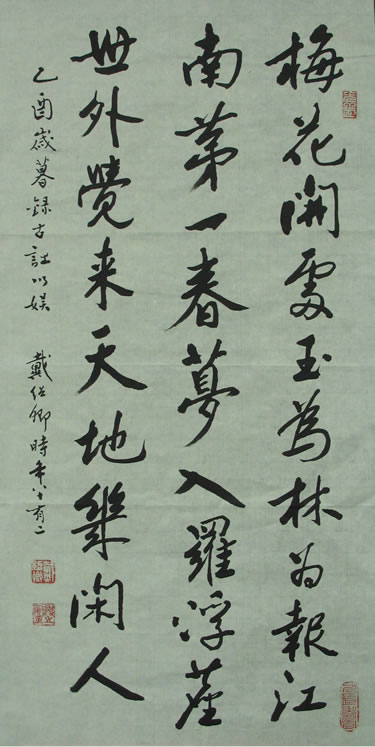 梅花開處玉為林为報江
南第一春夢入羅浮塵
世外覺来天地幾閑人
乙酉歲暮錄古以娱 戴紹卿時年八十有二